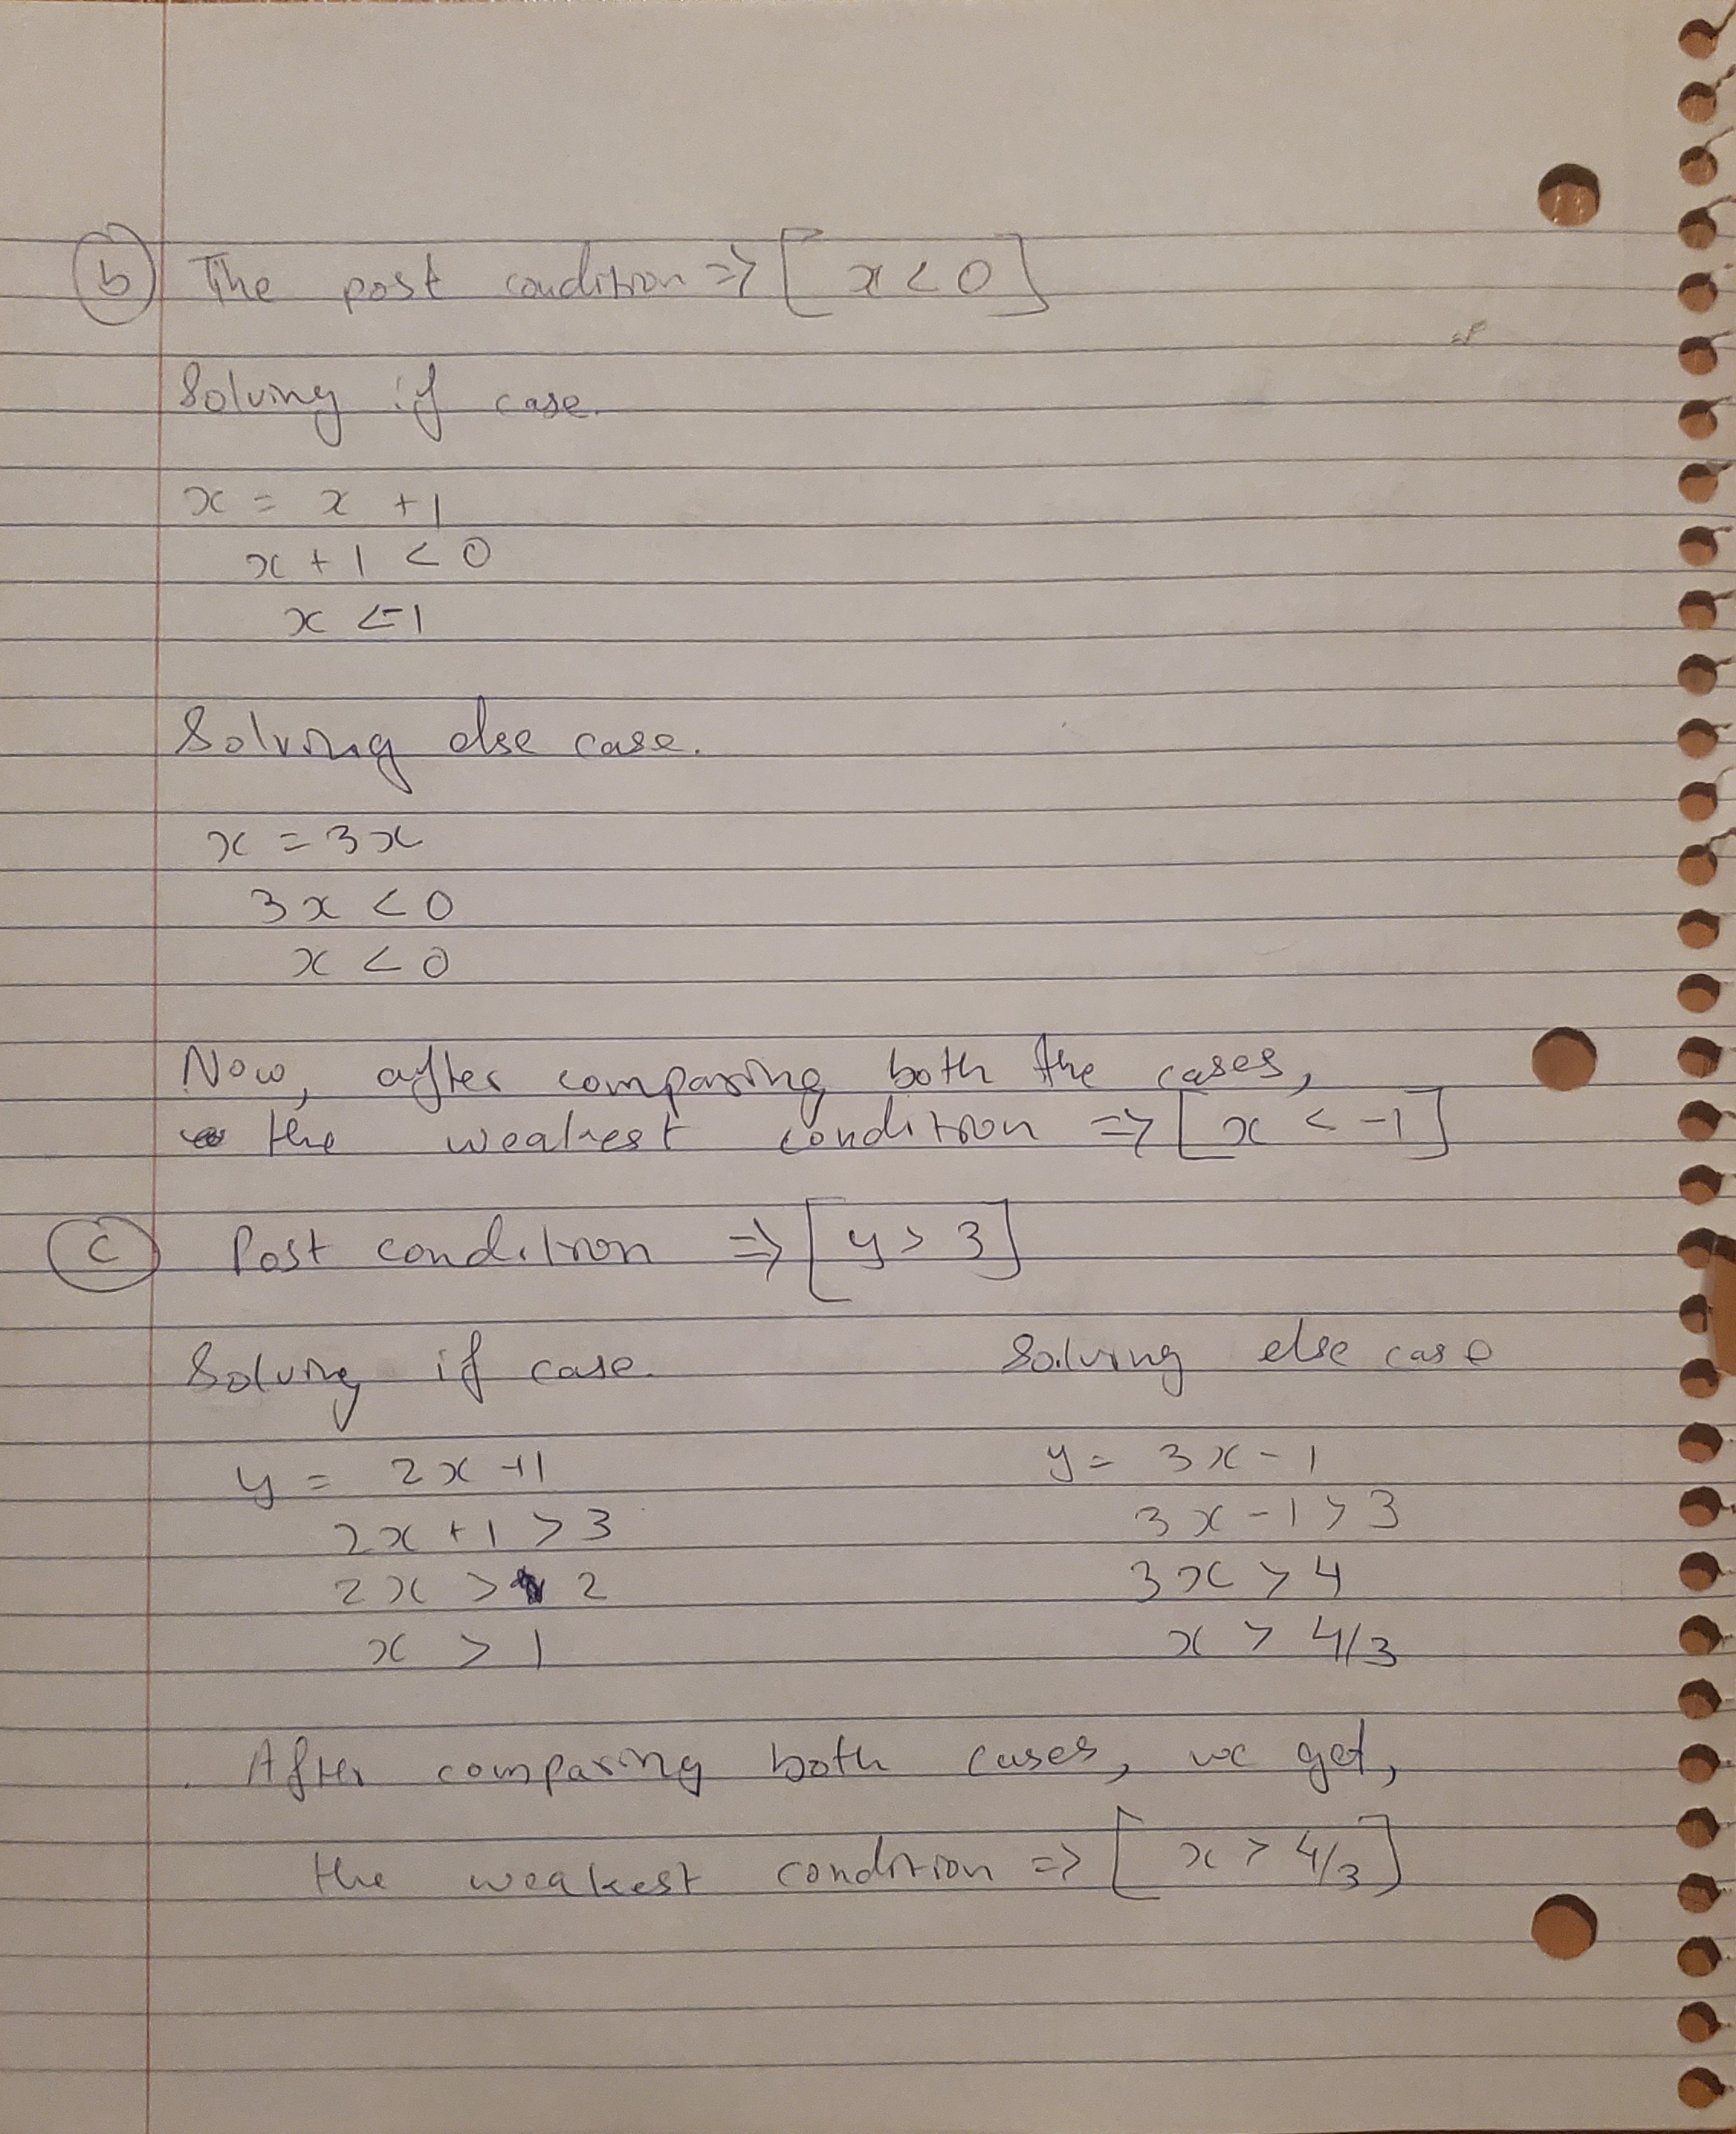 b The post condition => [x < 0]
Solving if case.
x = x + 1
x + 1 < 0
x < -1
Solving else case.
x = 3x
3x < 0
x < 0
Now, after comparing both the cases,
the weakest condition => [x < -1]
c Post condition => [y > 3]
Solving if case.
y = 2x + 1
2x + 1 > 3
2x > 2
x > 1
Solving else case
y = 3x - 1
3x - 1 > 3
3x > 4
x > 4/3
After comparing both cases, we get,
the weakest condition => [x > 4/3]